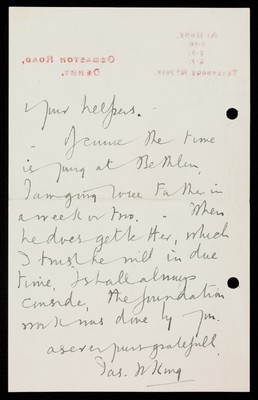 At Home,
Osmaston Road,
Derby.
Telephone
your helpers. -
- the time
is at
I am going to see Father in
a week or two. - When
he does get better, which
I trust he will in due
time, I shall always
consider, the foundation
work was done by you.
as ever yours gratefully
Jas. W King